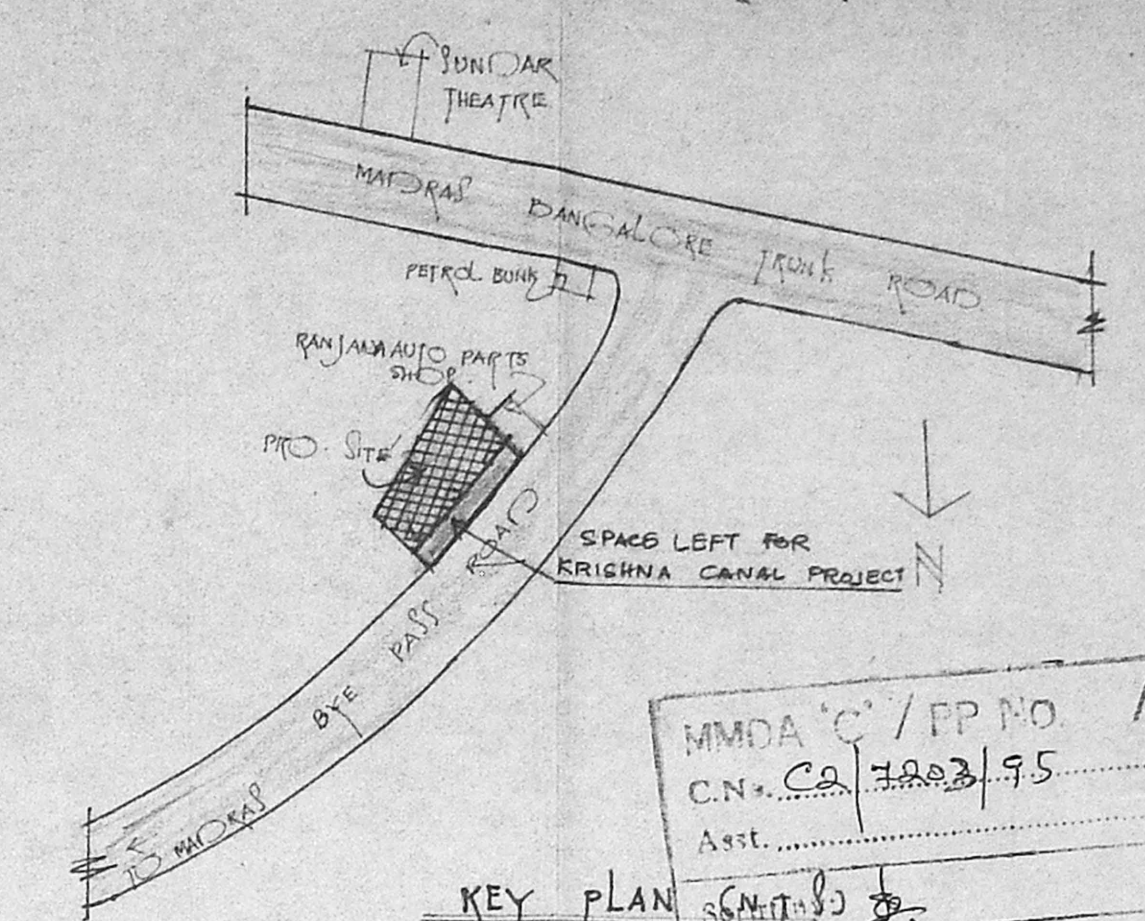 SUNDAR
THEATRE
MADRAS BANGALORE TRUNK ROAD
PETROL BUNK
RANJANA AUTO PARTS
SHOP
PRO. SITE
SPACE LEFT FOR
KRISHNA CANAL PROJECT
N
BYE PASS ROAD
TO MADRAS
MMDA 'C' / PP NO.
C.No. C2/7203/95
Asst.
KEY PLAN